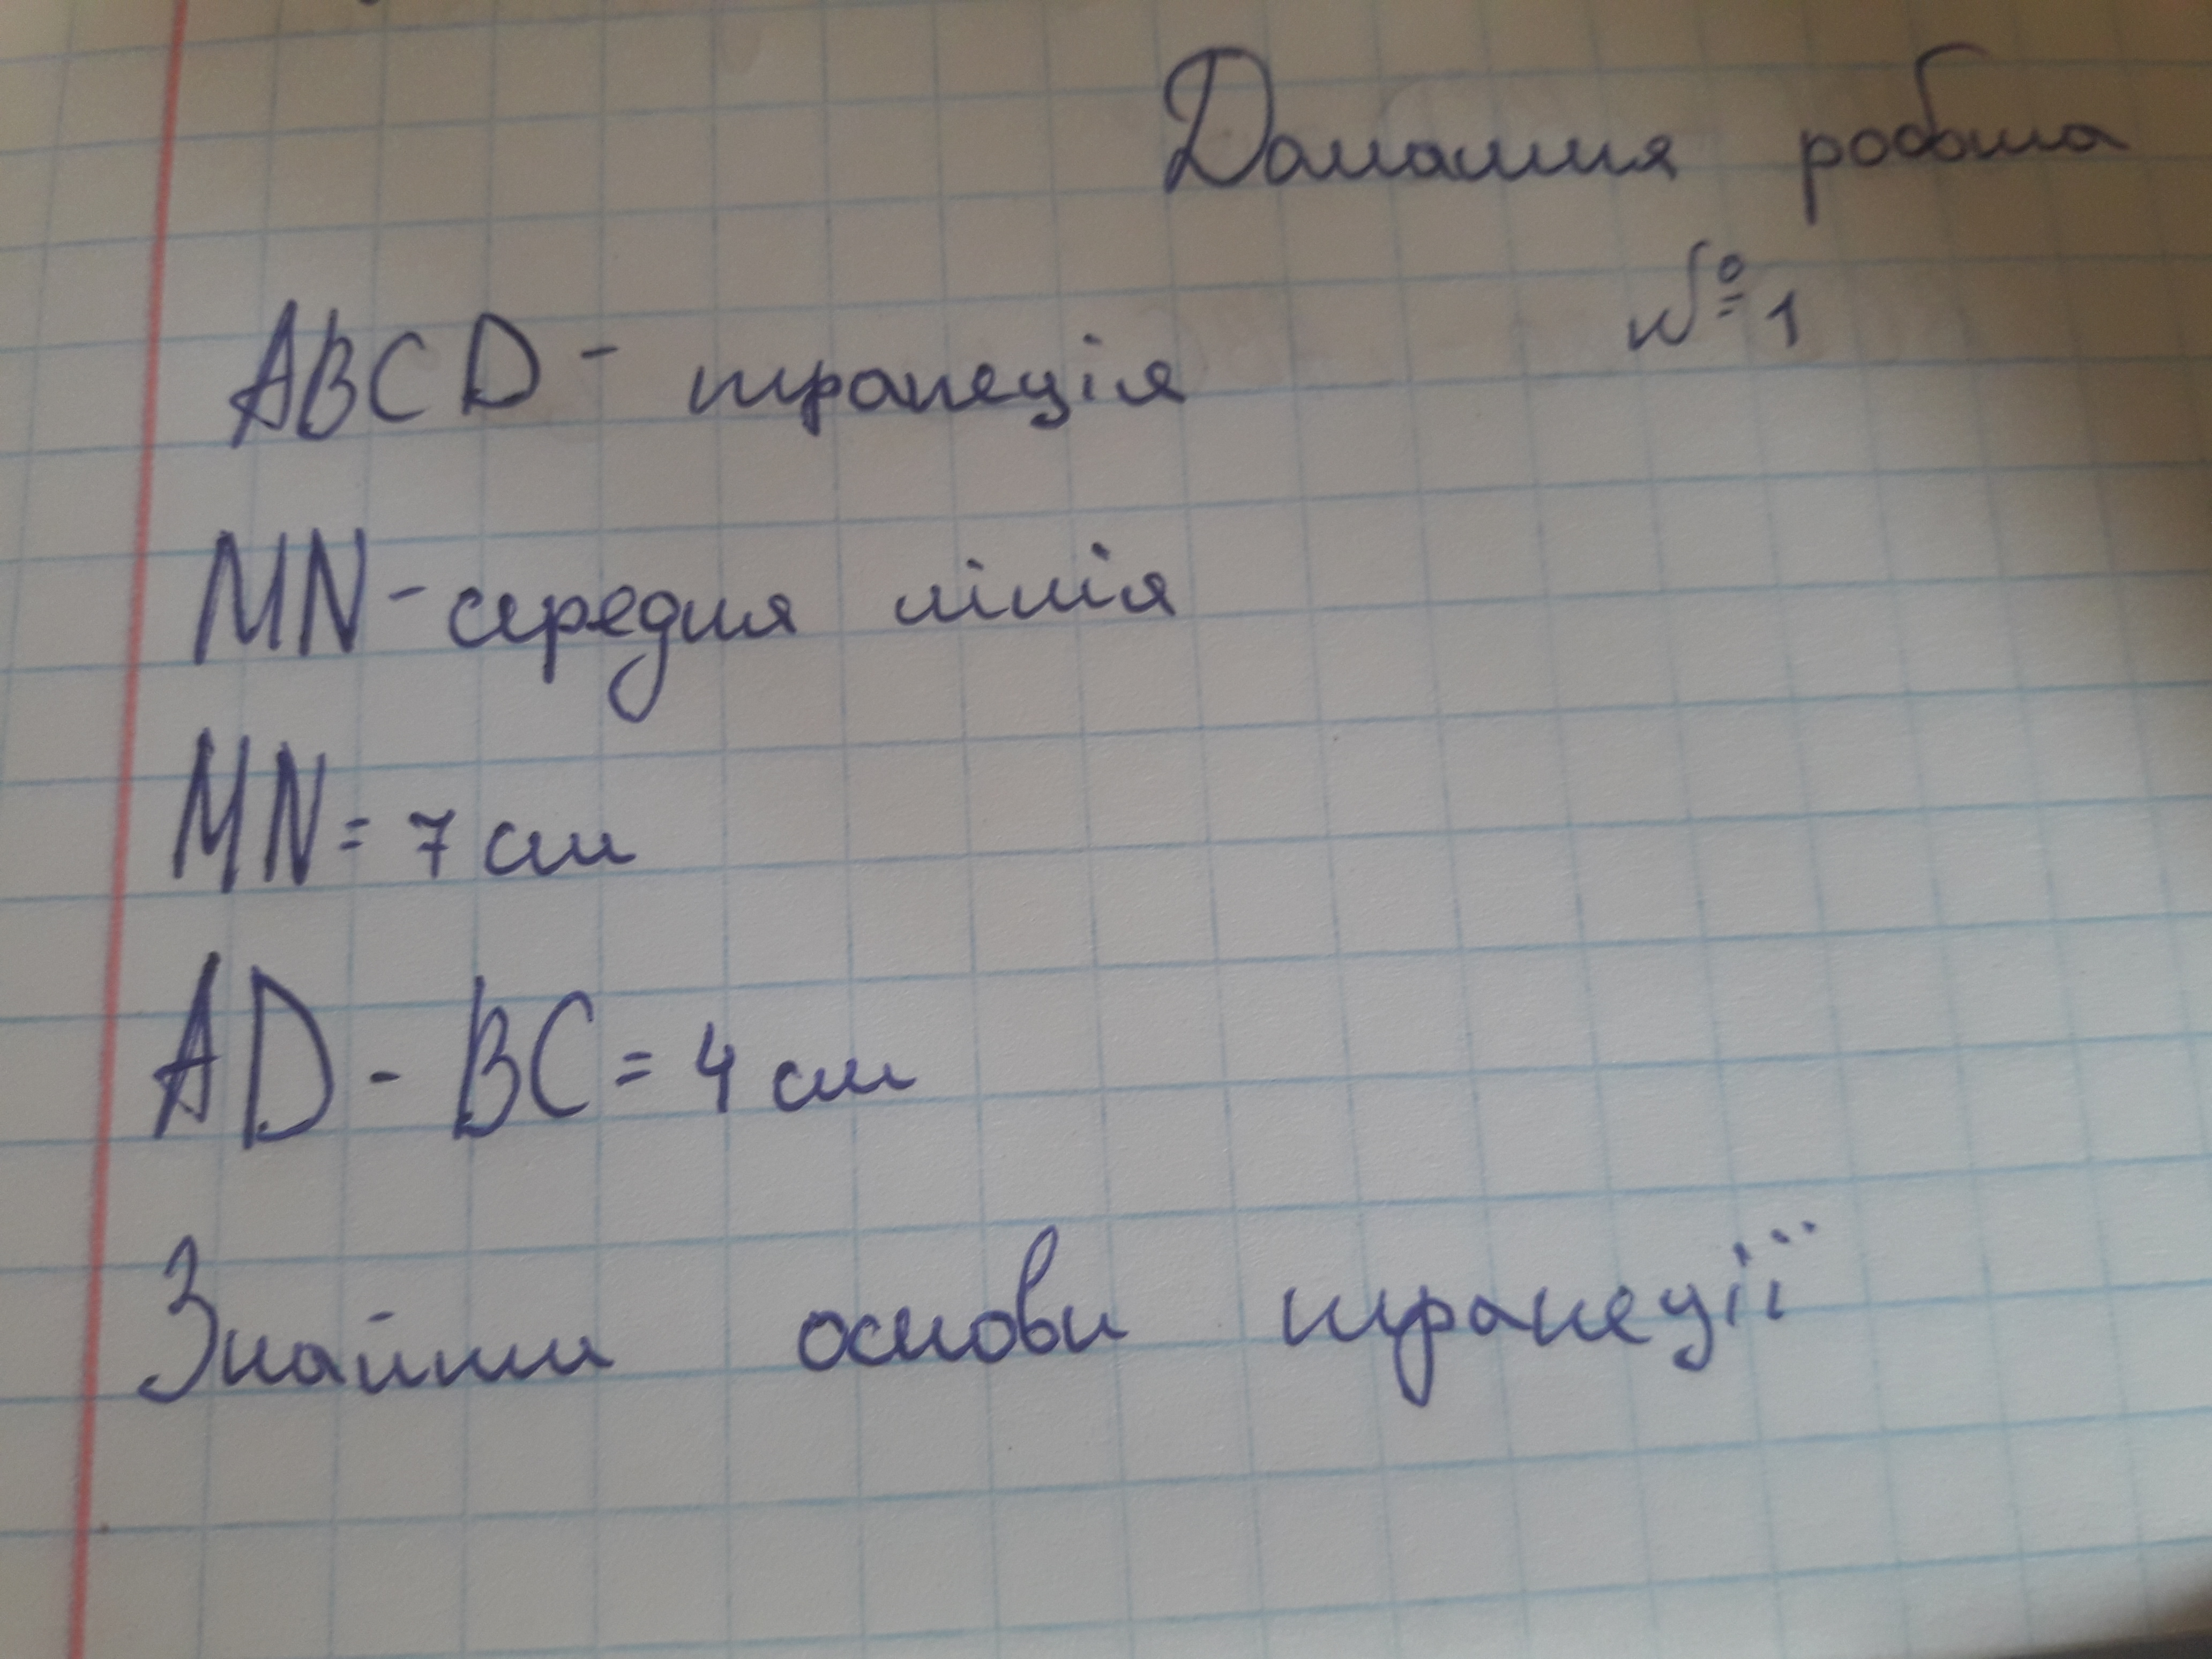 Домашня робота
№ 1
ABCD - трапеція
MN - середня лінія
MN = 7 см
AD - BC = 4 см
Знайти основи трапеції